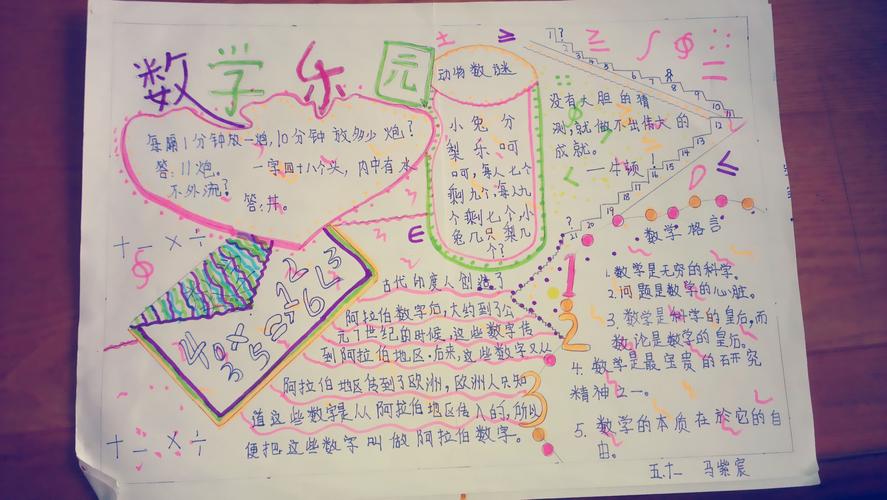 数学乐园
每隔1分钟放一炮,10分钟放多少炮?
答:11炮。
一字四十八个头,内中有水
不外流?
答:井。
动物数谜
小兔分
梨乐呵
呵,每人七个
剩九个,每人九
个剩七个,小
兔几只梨几
个?
没有大胆的猜
测,就做不出伟大的
成就。
——牛顿
+ - × ÷
古代印度人创造了
阿拉伯数字后,大约到了公
元7世纪的时候,这些数字传
到阿拉伯地区.后来,这些数字又从
阿拉伯地区传到了欧洲,欧洲人只知
道这些数字是从阿拉伯地区传入的,所以
便把这些数字叫做阿拉伯数字。
+ - × ÷
1
2
3
数学格言
1.数学是无穷的科学。
2.问题是数学的心脏。
3.数学是科学的皇后,而
数论是数学的皇后。
4.数学是最宝贵的研究
精神之一。
5.数学的本质在於它的自
由。
五.十一 马紫宸